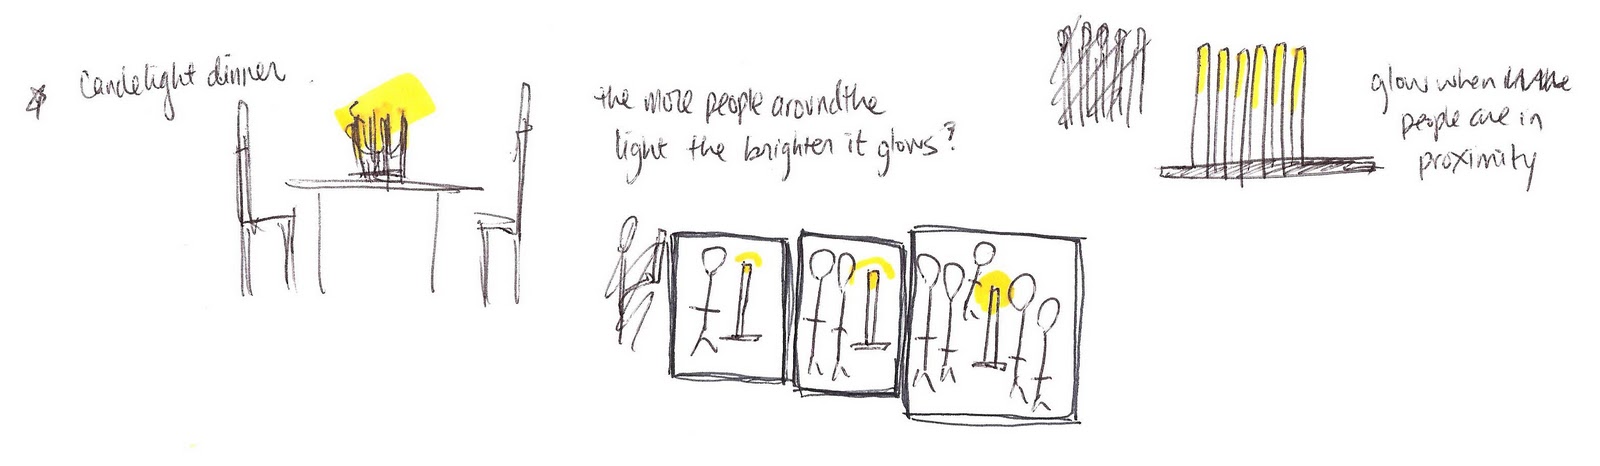 Candlelight dinner.
the more people around the
light the brighter it glows?
glow when the
people are in
proximity